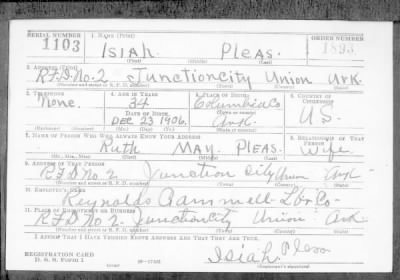 SERIAL NUMBER 1. NAME (Print) ORDER NUMBER
1103 ISIAH PLEAS. 1893
(First) (Middle) (Last)
2. ADDRESS (Print)
R.F.D. No. 2 Junction City Union Ark.
(Number and street or R. F. D. number) (Town) (County) (State)
3. TELEPHONE 4. AGE IN YEARS 5. PLACE OF BIRTH 6. COUNTRY OF CITIZENSHIP
None. 34 Columbia Co.
DATE OF BIRTH (Town or county) U.S.
DEC 23 1906. Ark.
(Exchange) (Number) (Mo.) (Day) (Yr.) (State or country)
7. NAME OF PERSON WHO WILL ALWAYS KNOW YOUR ADDRESS 8. RELATIONSHIP OF THAT PERSON
Ruth MAY. PLEAS. Wife
(Mr., Mrs., Miss) (First) (Middle) (Last)
9. ADDRESS OF THAT PERSON
R.F.D. No. 2 Junction City Union Ark
(Number and street or R. F. D. number) (Town) (County) (State)
10. EMPLOYER'S NAME
Reynolds Gammell Lbr Co.
11. PLACE OF EMPLOYMENT OR BUSINESS
R.F.D. No. 2 Junction City Union Ark
(Number and street or R. F. D. number) (Town) (County) (State)
I AFFIRM THAT I HAVE VERIFIED ABOVE ANSWERS AND THAT THEY ARE TRUE.
REGISTRATION CARD
D. S. S. Form 1 (over) 16-17105 Isiah Pleas
(Registrant's signature)